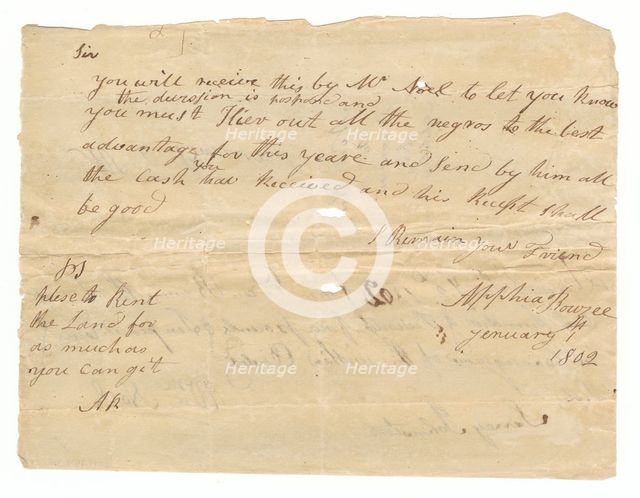 Sir
you will receive this by Mr Noel to let you Know
the durssion is posponed and
you must Hier out all the negros to the best
advantage for this yeare and Send by him all
you
the Cash have Received and his Recept Shall
be good
I Remain your Friend
Apphia Rouzee
yenuary 4
1802
PS
plese to Rent
the Land for
as much as
you can git
AR
Heritage
Heritage
Heritage
Heritage
Heritage
Heritage
Heritage
Heritage
C